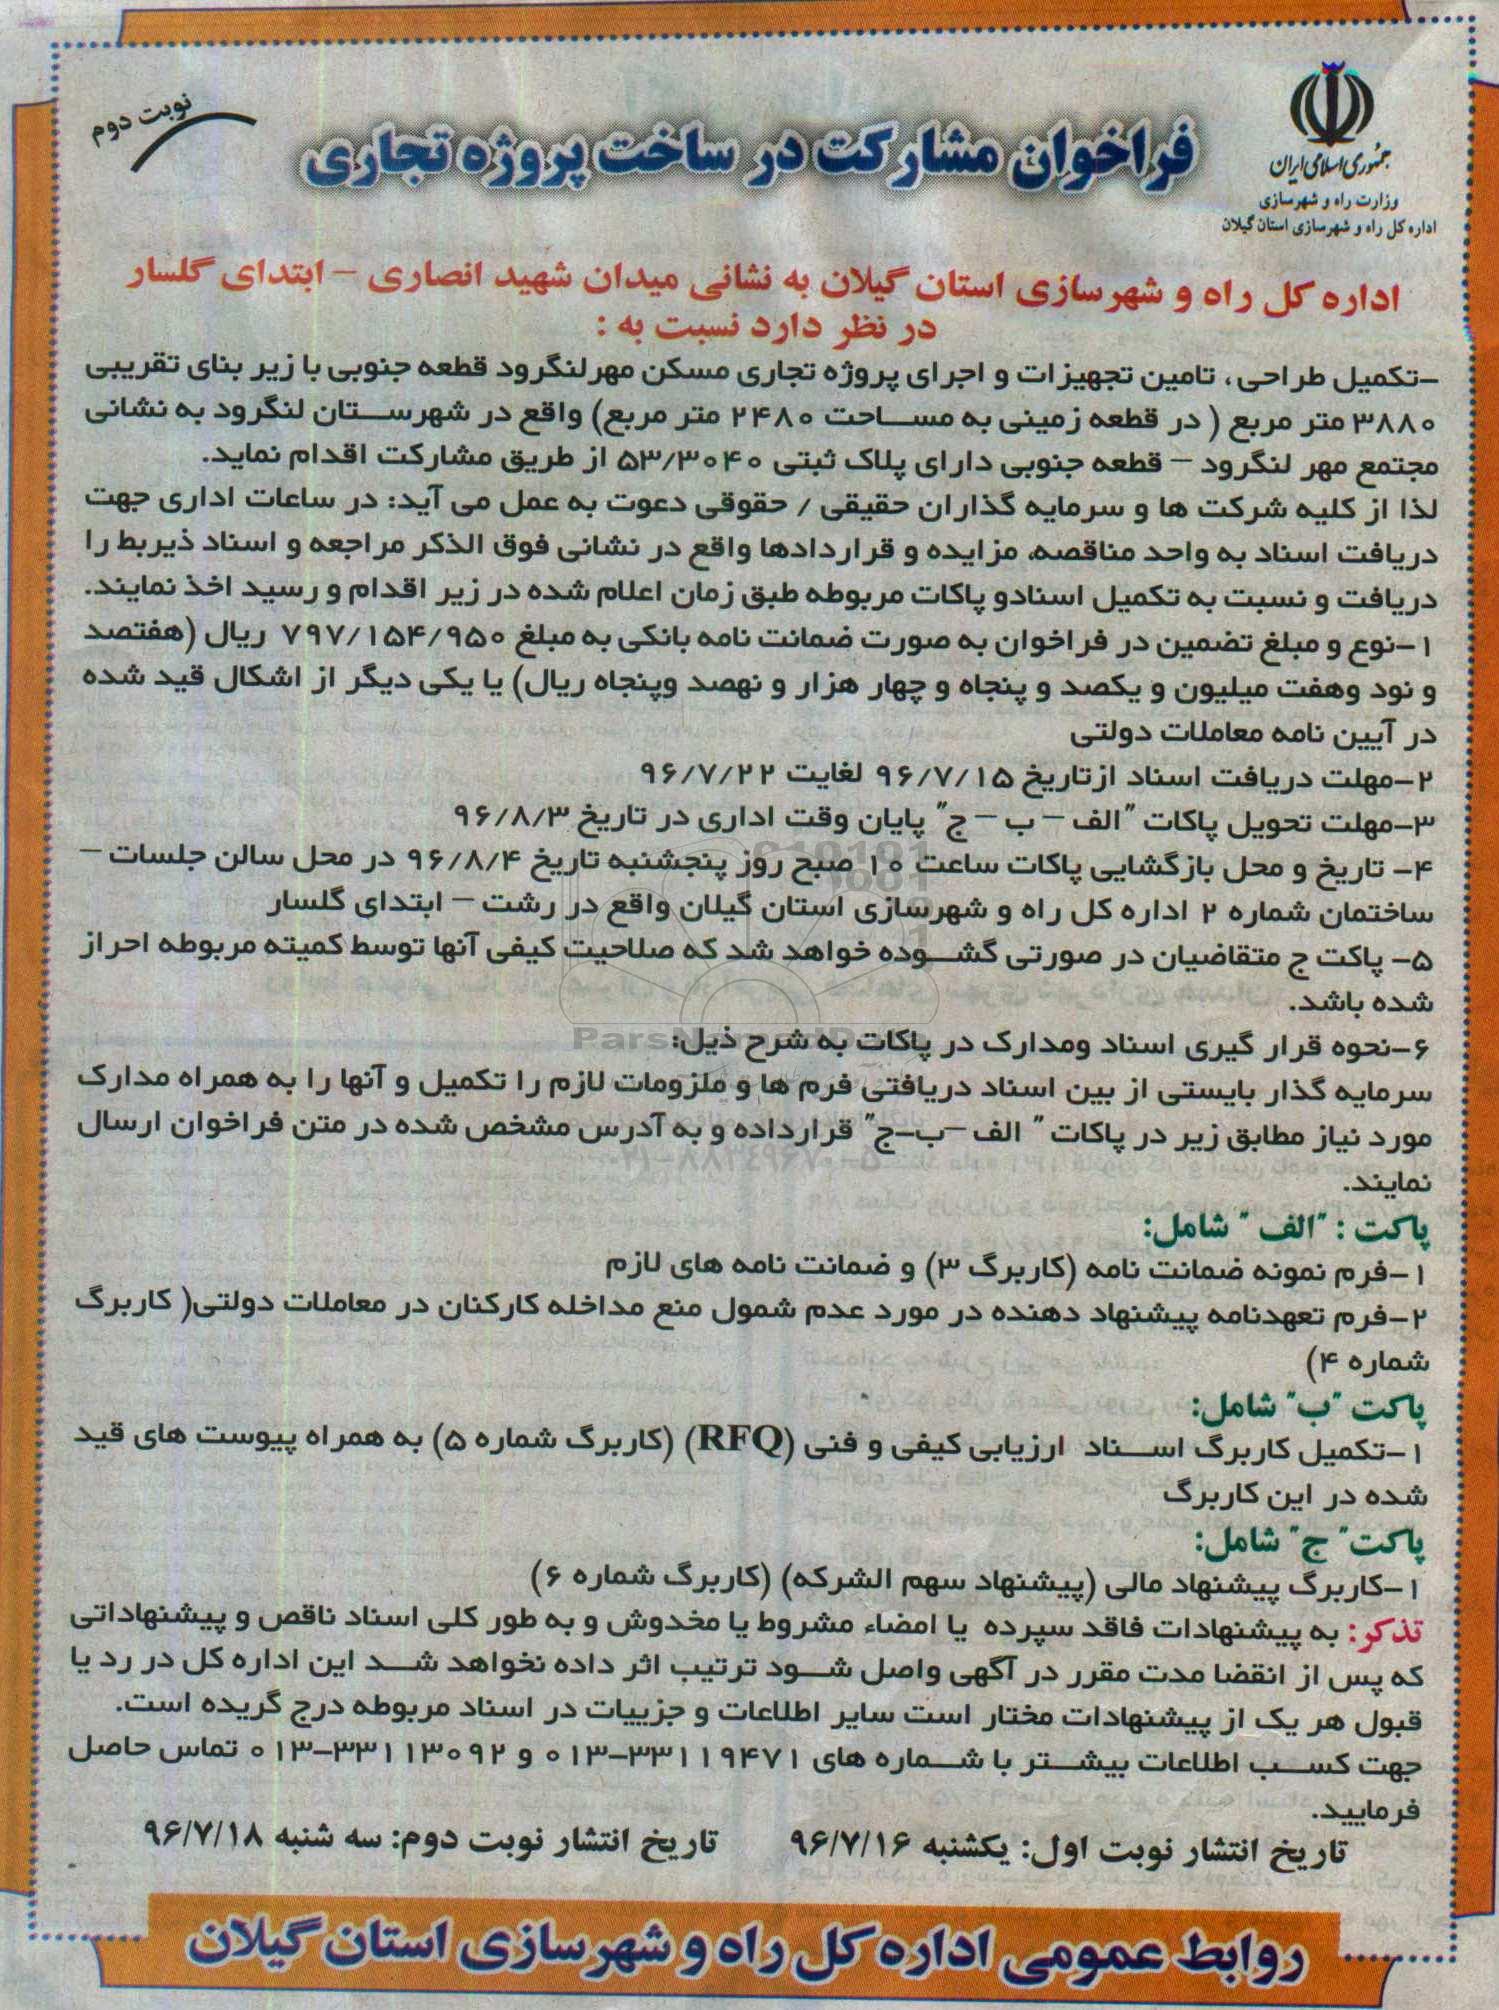 جمهوری اسلامی ایران
وزارت راه و شهرسازی
اداره کل راه و شهرسازی استان گیلان
فراخوان مشارکت در ساخت پروژه تجاری
نوبت دوم
اداره کل راه و شهرسازی استان گیلان به نشانی میدان شهید انصاری – ابتدای گلسار
در نظر دارد نسبت به :
-تکمیل طراحی، تامین تجهیزات و اجرای پروژه تجاری مسکن مهر لنگرود قطعه جنوبی با زیر بنای تقریبی
۳۸۸۰ متر مربع ( در قطعه زمینی به مساحت ۲۴۸۰ متر مربع) واقع در شهرستان لنگرود به نشانی
مجتمع مهر لنگرود – قطعه جنوبی دارای پلاک ثبتی ۵۳/۳۰۴۰ از طریق مشارکت اقدام نماید.
لذا از کلیه شرکت ها و سرمایه گذاران حقیقی / حقوقی دعوت به عمل می آید: در ساعات اداری جهت
دریافت اسناد به واحد مناقصه، مزایده و قراردادها واقع در نشانی فوق الذکر مراجعه و اسناد ذیربط را
دریافت و نسبت به تکمیل اسنادو پاکات مربوطه طبق زمان اعلام شده در زیر اقدام و رسید اخذ نمایند.
۱-نوع و مبلغ تضمین در فراخوان به صورت ضمانت نامه بانکی به مبلغ ۷۹۷/۱۵۴/۹۵۰ ریال (هفتصد
و نود وهفت میلیون و یکصد و پنجاه و چهار هزار و نهصد وپنجاه ریال) یا یکی دیگر از اشکال قید شده
در آیین نامه معاملات دولتی
۲-مهلت دریافت اسناد ازتاریخ ۹۶/۷/۱۵ لغایت ۹۶/۷/۲۲
۳-مهلت تحویل پاکات "الف – ب – ج" پایان وقت اداری در تاریخ ۹۶/۸/۳
۴- تاریخ و محل بازگشایی پاکات ساعت ۱۰ صبح روز پنجشنبه تاریخ ۹۶/۸/۴ در محل سالن جلسات –
ساختمان شماره ۲ اداره کل راه و شهرسازی استان گیلان واقع در رشت – ابتدای گلسار
۵- پاکت ج متقاضیان در صورتی گشوده خواهد شد که صلاحیت کیفی آنها توسط کمیته مربوطه احراز
شده باشد.
۶-نحوه قرار گیری اسناد ومدارک در پاکات به شرح ذیل:
سرمایه گذار بایستی از بین اسناد دریافتی فرم ها و ملزومات لازم را تکمیل و آنها را به همراه مدارک
مورد نیاز مطابق زیر در پاکات " الف –ب-ج" قرارداده و به آدرس مشخص شده در متن فراخوان ارسال
نمایند.
پاکت : "الف " شامل:
۱-فرم نمونه ضمانت نامه (کاربرگ ۳) و ضمانت نامه های لازم
۲-فرم تعهدنامه پیشنهاد دهنده در مورد عدم شمول منع مداخله کارکنان در معاملات دولتی( کاربرگ
شماره ۴)
پاکت "ب" شامل:
۱-تکمیل کاربرگ اسناد ارزیابی کیفی و فنی (RFQ) (کاربرگ شماره ۵) به همراه پیوست های قید
شده در این کاربرگ
پاکت" ج" شامل:
۱-کاربرگ پیشنهاد مالی (پیشنهاد سهم الشرکه) (کاربرگ شماره ۶)
تذکر: به پیشنهادات فاقد سپرده یا امضاء مشروط یا مخدوش و به طور کلی اسناد ناقص و پیشنهاداتی
که پس از انقضا مدت مقرر در آگهی واصل شود ترتیب اثر داده نخواهد شد این اداره کل در رد یا
قبول هر یک از پیشنهادات مختار است سایر اطلاعات و جزییات در اسناد مربوطه درج گریده است.
جهت کسب اطلاعات بیشتر با شماره های ۳۳۱۱۹۴۷۱-۰۱۳ و ۳۳۱۱۳۰۹۲-۰۱۳ تماس حاصل
فرمایید.
تاریخ انتشار نوبت اول: یکشنبه ۹۶/۷/۱۶ تاریخ انتشار نوبت دوم: سه شنبه ۹۶/۷/۱۸
روابط عمومی اداره کل راه و شهرسازی استان گیلان